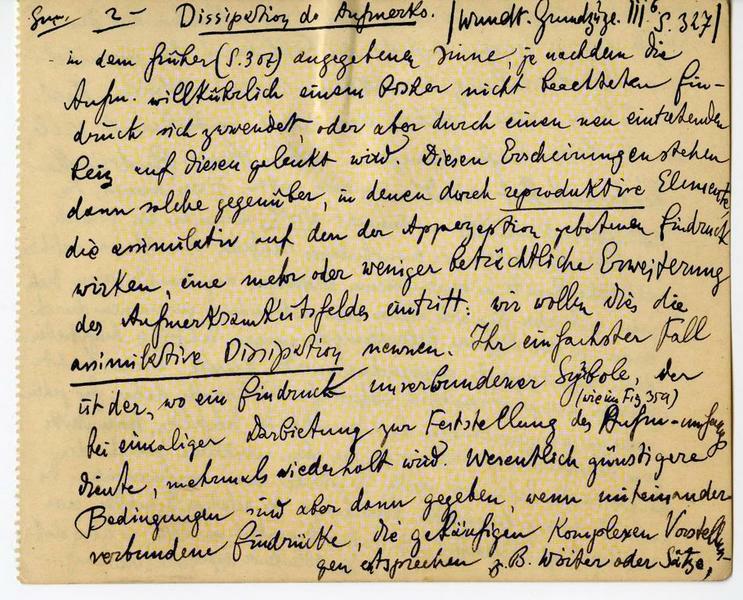 2- Dissipation d. Aufmerks. / Wundt. Grundzüge. III⁶ S. 327/
in dem früher (S. 307) angegebenen Sinne, je nachdem die
Aufm. willkührlich einem bisher nicht beachteten Ein-
druck sich zuwendet, oder aber durch einen neu eintretenden
Reiz auf diesen gelenkt wird. Diesen Erscheinungen stehen
dann solche gegenüber, in denen durch reproduktive Elemente,
die assimilativ auf den der Apperzeption gebotenen Eindruck
wirken, eine mehr oder weniger beträchtliche Erweiterung
des Aufmerksamkeitsfeldes eintritt: wir wollen dies die
assimilative Dissipation nennen. Ihr einfachster Fall
ist der, wo ein Eindruck unverbundener Symbole, der
(wie im Fig 359)
bei einmaliger Darbietung zur Feststellung des Aufm-umfangs
diente, mehrmals wiederholt wird. Wesentlich günstigere
Bedingungen sind aber dann gegeben, wenn miteinander
verbundene Eindrücke, die geläufigen Komplexen Vorstellun-
gen entsprechen z.B. Wörter oder Sätze,